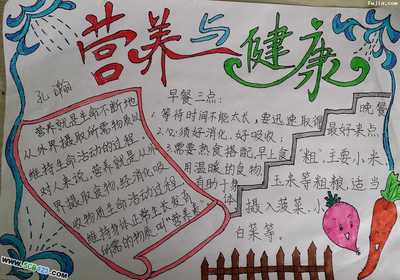 营养与健康
孔瀚
营养就是生命不断地
从外界摄取所需物质以
维持生命活动的过程.
对人来说,营养就是从外
界摄取食物,经消化吸
收物质生命活动的过程.
维持身体正常生长发育
所需的物质叫“营养素”
早餐三点:
1.等待时间不能太长,需迅速取得
2.必须好消化,好吸收;
3.需要热食搭配,早上食
用温暖的食物
有助于身
体
晚餐
最好来点
“粗”,主要小米,
玉米等粗粮,适当
摄入菠菜.小
白菜等.